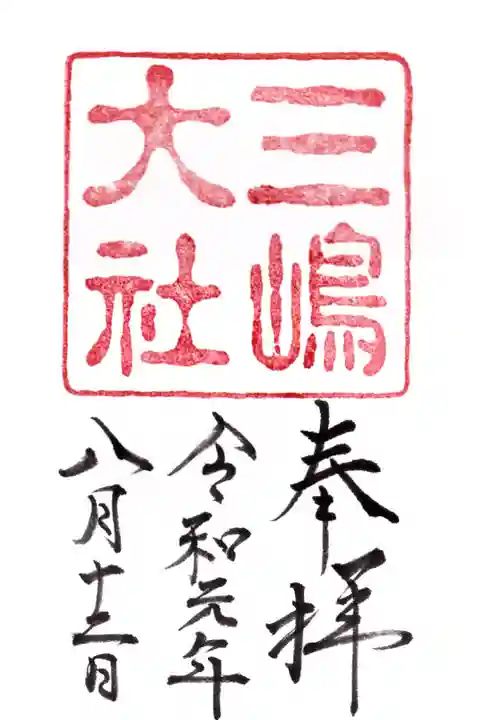 三嶋
大社
奉拝
令和元年
八月十三日